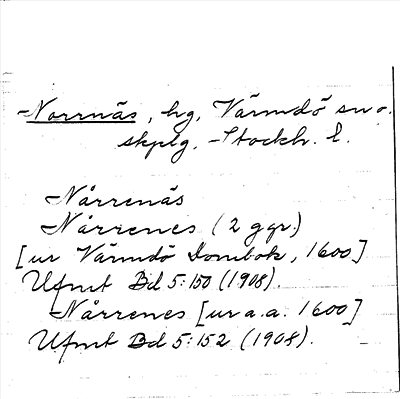 Norrnäs, hg, Värmdö sn o.
skplg. Stockh. l.
Nårrenäs
Nårrenes (2 ggr.)
[ur Värmdö Dombok, 1600]
Ufmt Bd 5:150 (1908).
Nårrenes [ur a.a. 1600]
Ufmt Bd 5:152 (1908).